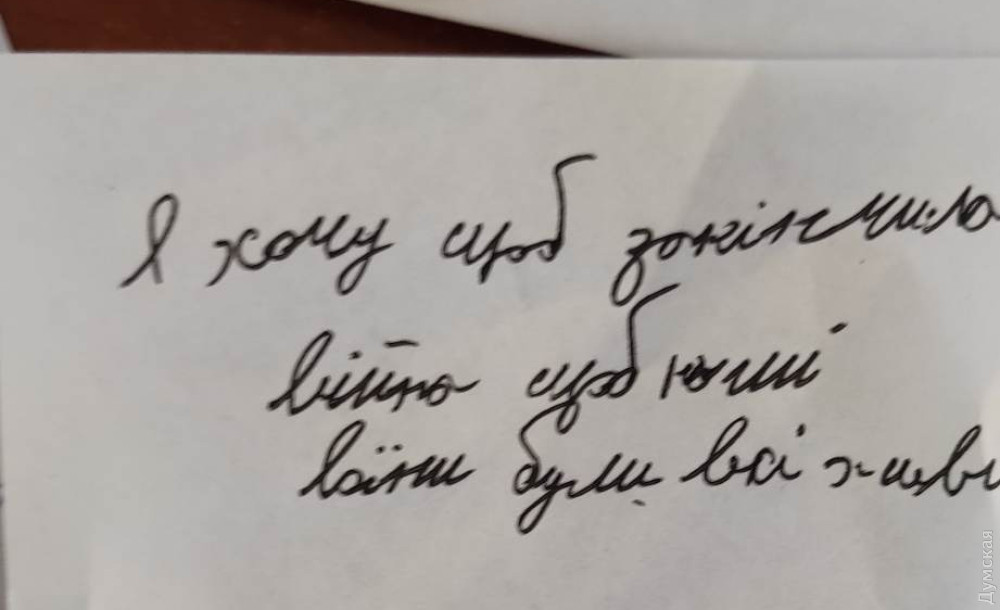 Я хочу щоб закінчила
війна щоб наші
воїни були всі живі
Думская